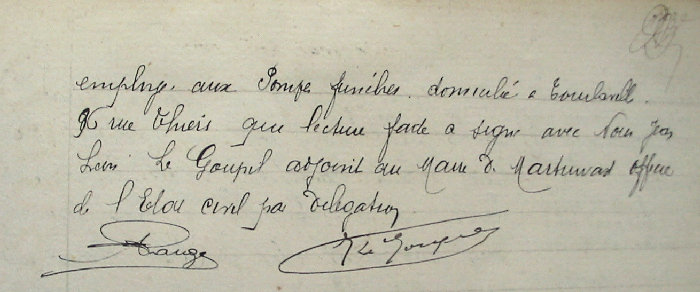 employé aux Pompe funèbres domicilié a Tourlaville
rue Thiers que lecture faite a signé avec Nous Jean
Louis Le Goupil adjoint au Maire de Martinvast officier
de l'Etat civil par Délégation
Le Goupil